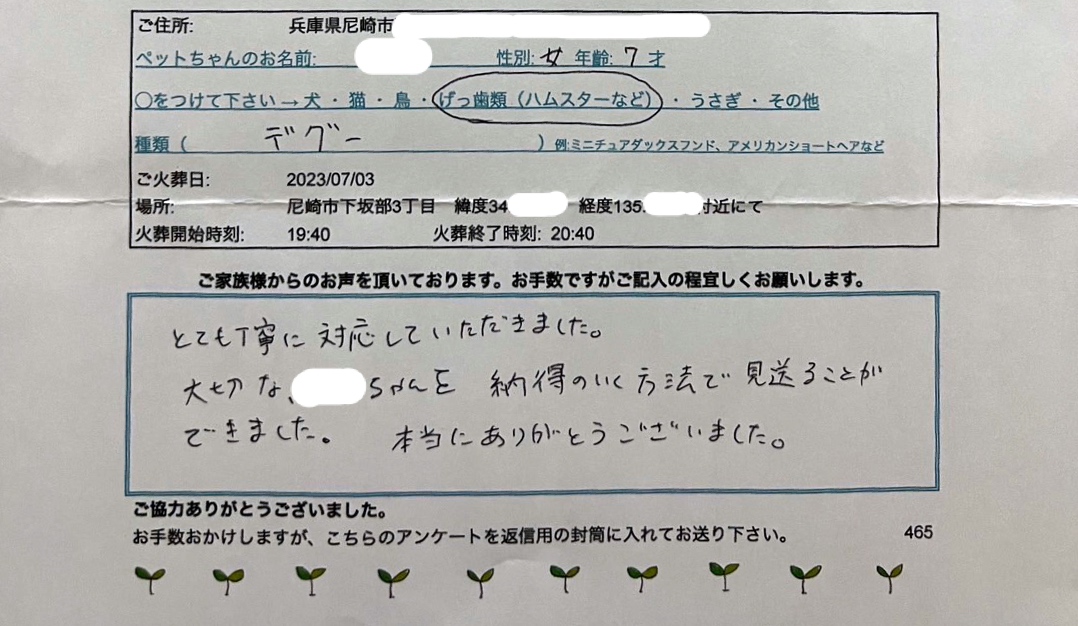 ご住所: 兵庫県尼崎市
ペットちゃんのお名前: 性別: 女 年齢: 7 才
〇をつけて下さい→犬・猫・鳥・げっ歯類（ハムスターなど）・うさぎ・その他
種類（ デグー ）例:ミニチュアダックスフンド、アメリカンショートヘアなど
ご火葬日: 2023/07/03
場所: 尼崎市下坂部3丁目 緯度34. 経度135. 付近にて
火葬開始時刻: 19:40 火葬終了時刻: 20:40
ご家族様からのお声を頂いております。お手数ですがご記入の程宜しくお願いします。
とても丁寧に対応していただきました。
大切な、ちゃんを 納得のいく方法で見送ることが
できました。 本当にありがとうございました。
ご協力ありがとうございました。
お手数おかけしますが、こちらのアンケートを返信用の封筒に入れてお送り下さい。 465